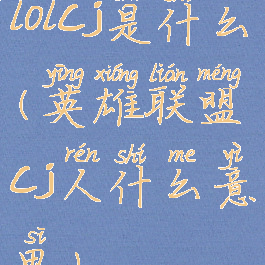 lolcj是什么
yīng xióng lián méng
(英雄联盟
rén shí me yì
cj人什么意
sī
思)